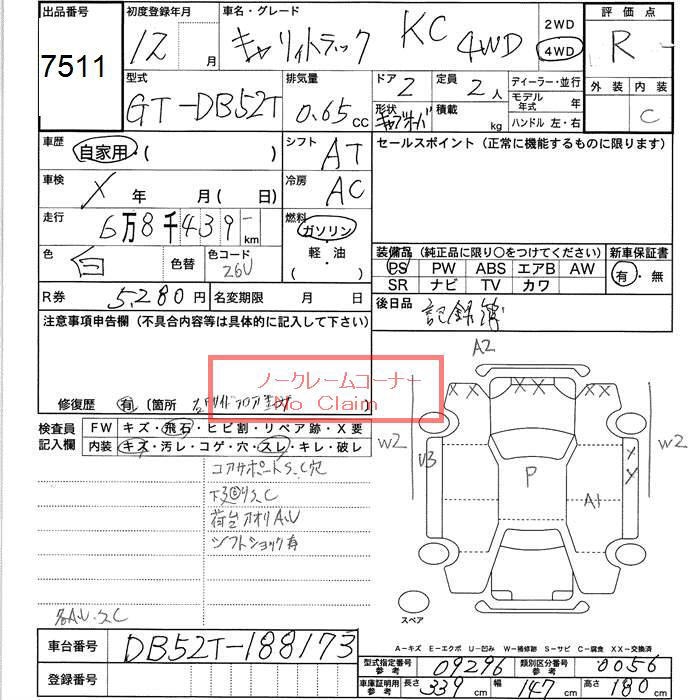 出品番号 初度登録年月 車名・グレード 評価点
7511 12月 キャリィトラック KC 4WD 2WD 4WD R
型式 排気量 ドア 2 定員 2人 ディーラー・並行 外装 内装
GT-DB52T 0.65cc 形状 積載 kg モデル年式 年 ハンドル 左・右 C
車歴 自家用・( ) シフト AT セールスポイント (正常に機能するものに限ります)
車検 X 年 月(日) 冷房 AC
走行 6万8千439 km 燃料 ガソリン・軽・油 ( )
色 白 色替 色コード 26U
装備品 (純正品に限り○をつけてください) 新車保証書
PS PW ABS エアB AW 有・無
SR ナビ TV カワ
R券 5,280円 名変期限 月 日 後日品 記録簿
注意事項申告欄 (不具合内容等は具体的に記入して下さい)
ノークレームコーナー
No Claim
修復歴 有 〔箇所
検査員記入欄 FW キズ・飛石・ヒビ割・リペア跡・X要
内装 キズ・汚レ・コゲ・穴・スレ・キレ・破レ
コアサポートS.C穴
荷台アオリA.U
シフトショック有
A2
XX XX
W2 U3 P A1 X Y W2
スペア
A-キズ E-エクボ U-凹み W-補修跡 S-サビ C-腐食 XX-交換済
車台番号 DB52T-188173
型式指定番号 参考 09296 類別区分番号 参考 0056
登録番号
車庫証明用 参考 長さ 339cm 幅 147cm 高さ 180cm